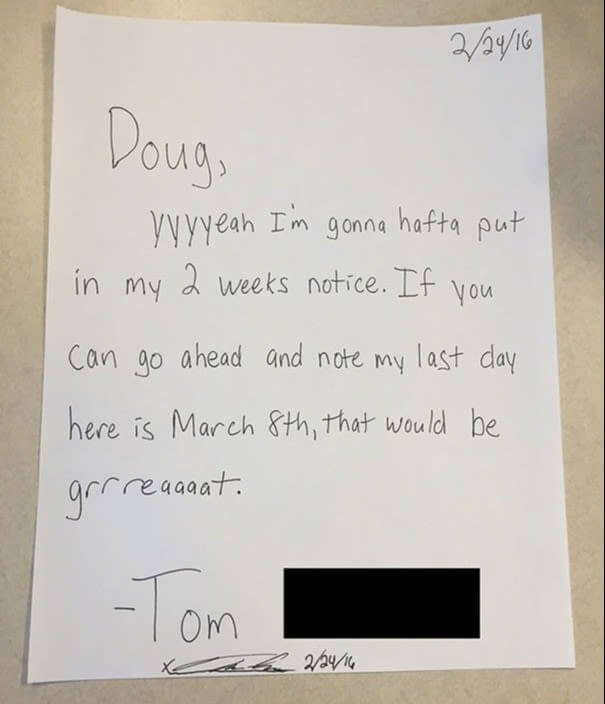 2/24/16
Doug,
yyyyeah I'm gonna hafta put
in my 2 weeks notice. If you
can go ahead and note my last day
here is March 8th, that would be
grrreaaaat.
-Tom
x 2/24/16